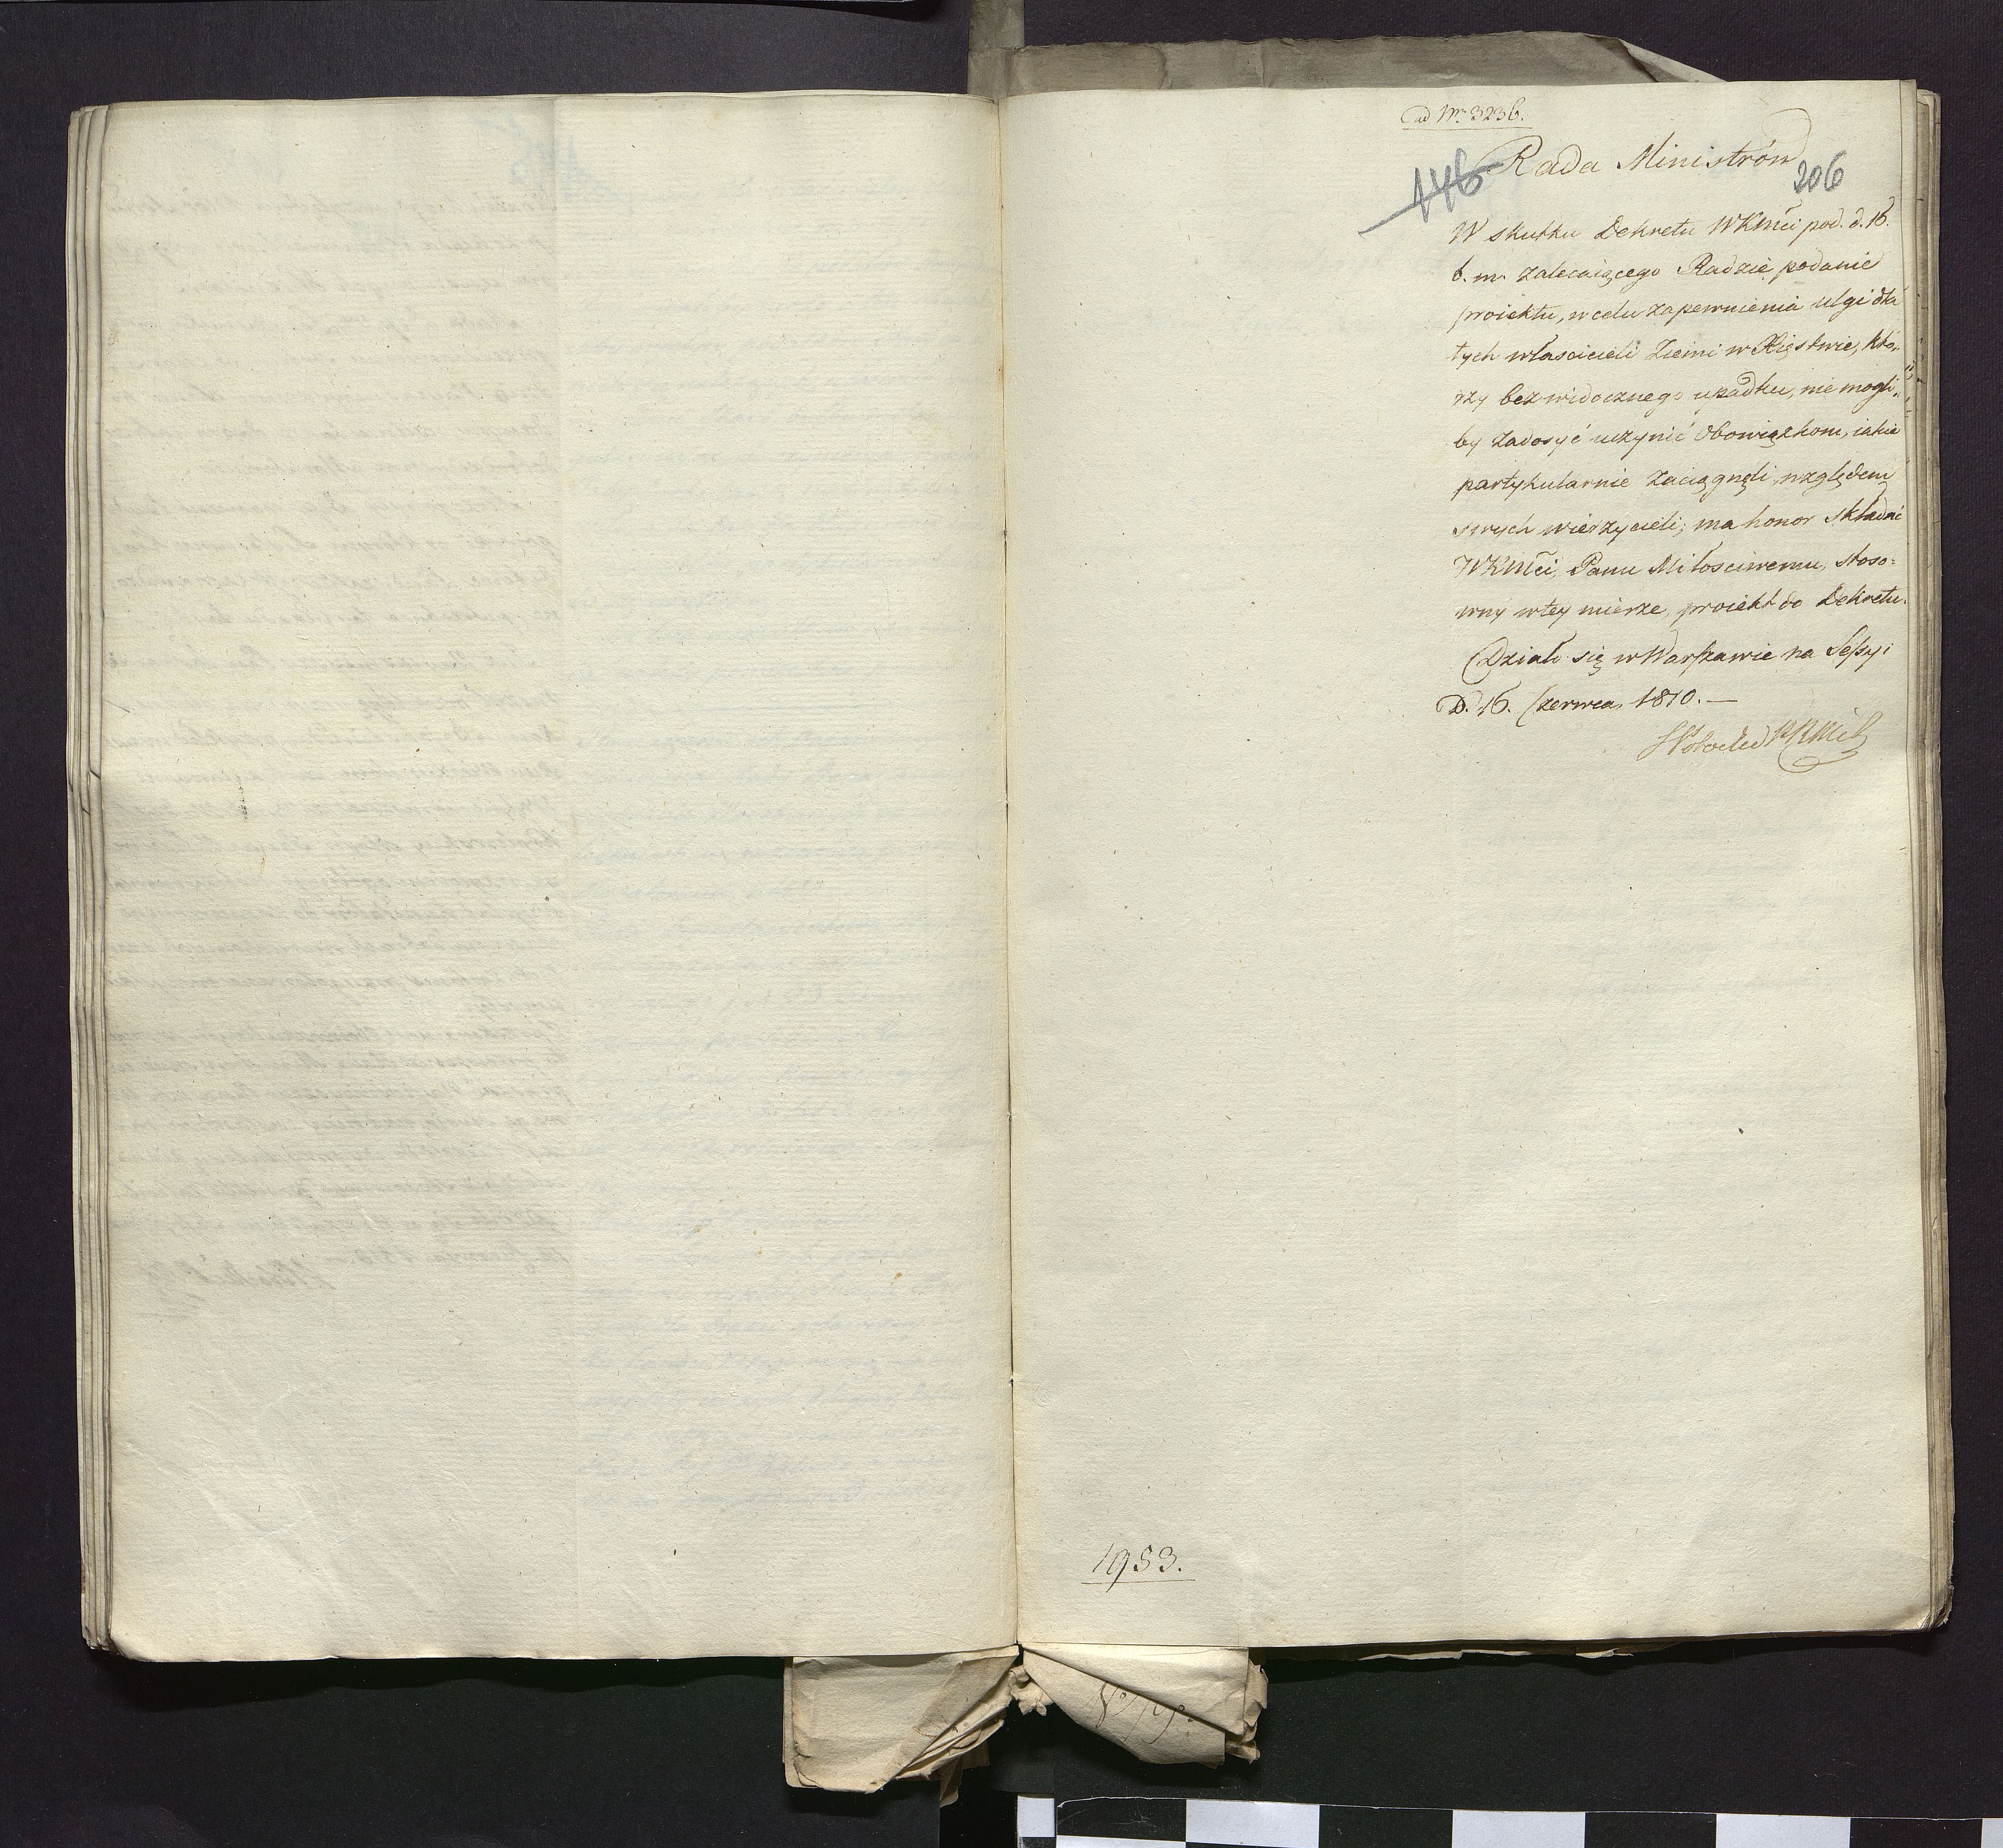 ad Nr. 3236.
Rada Ministrów
146
206
W skutku Dekretu WKMći pod. d. 16.
b. m. zalecaiącego Radzie podanie
proiektu, w celu zapewnienia ulgi dla
tych właścicieli Ziemi w Xięstwie, któ„
rzy bez widocznego upadku, nie mogli„
by zadosyć uczynić obowiązkom, iakie
partykularnie zaciągnęli względem
swych wierzycieli; ma honor składać
WKMći, Panu Miłosciwemu, stoso=
wny w tey mierze, proiekt do Dekretu.
Działo się w Warszawie na Sessyi
D. 16. Czerwca 1810. —
1953.